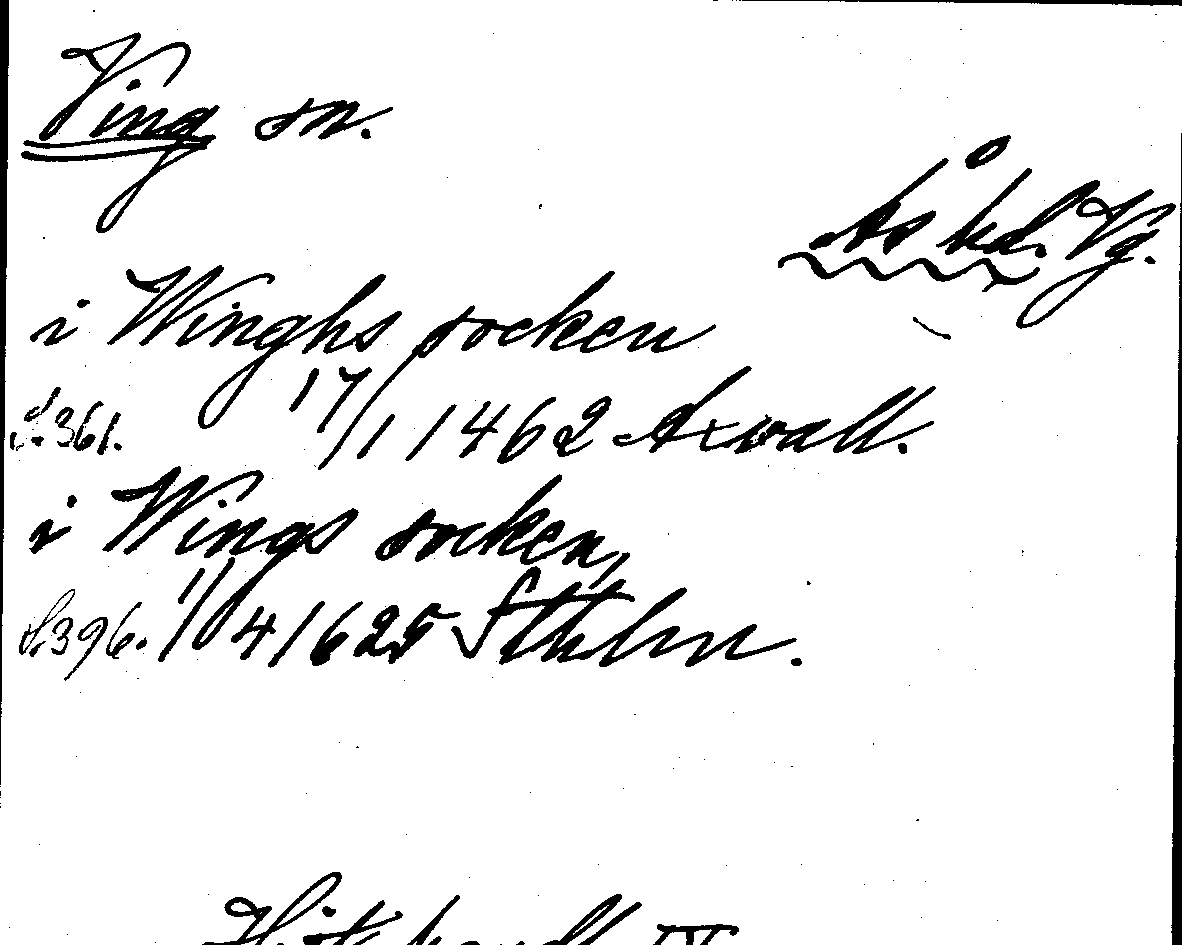 Ving sn.
Ås hd. Vg.
i Winghs socken
S.361. 17/1 1462 Axvall.
i Wings socken,
S.396. 1/4 1625 Sthlm.
Hist. handl. IV